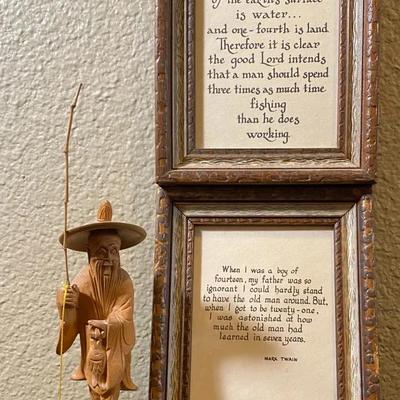 of the earth's surface
is water...
and one-fourth is land
Therefore it is clear
the good Lord intends
that a man should spend
three times as much time
fishing
than he does
working.
When I was a boy of
fourteen, my father was so
ignorant I could hardly stand
to have the old man around. But,
when I got to be twenty-one,
I was astonished at how
much the old man had
learned in seven years.
MARK TWAIN